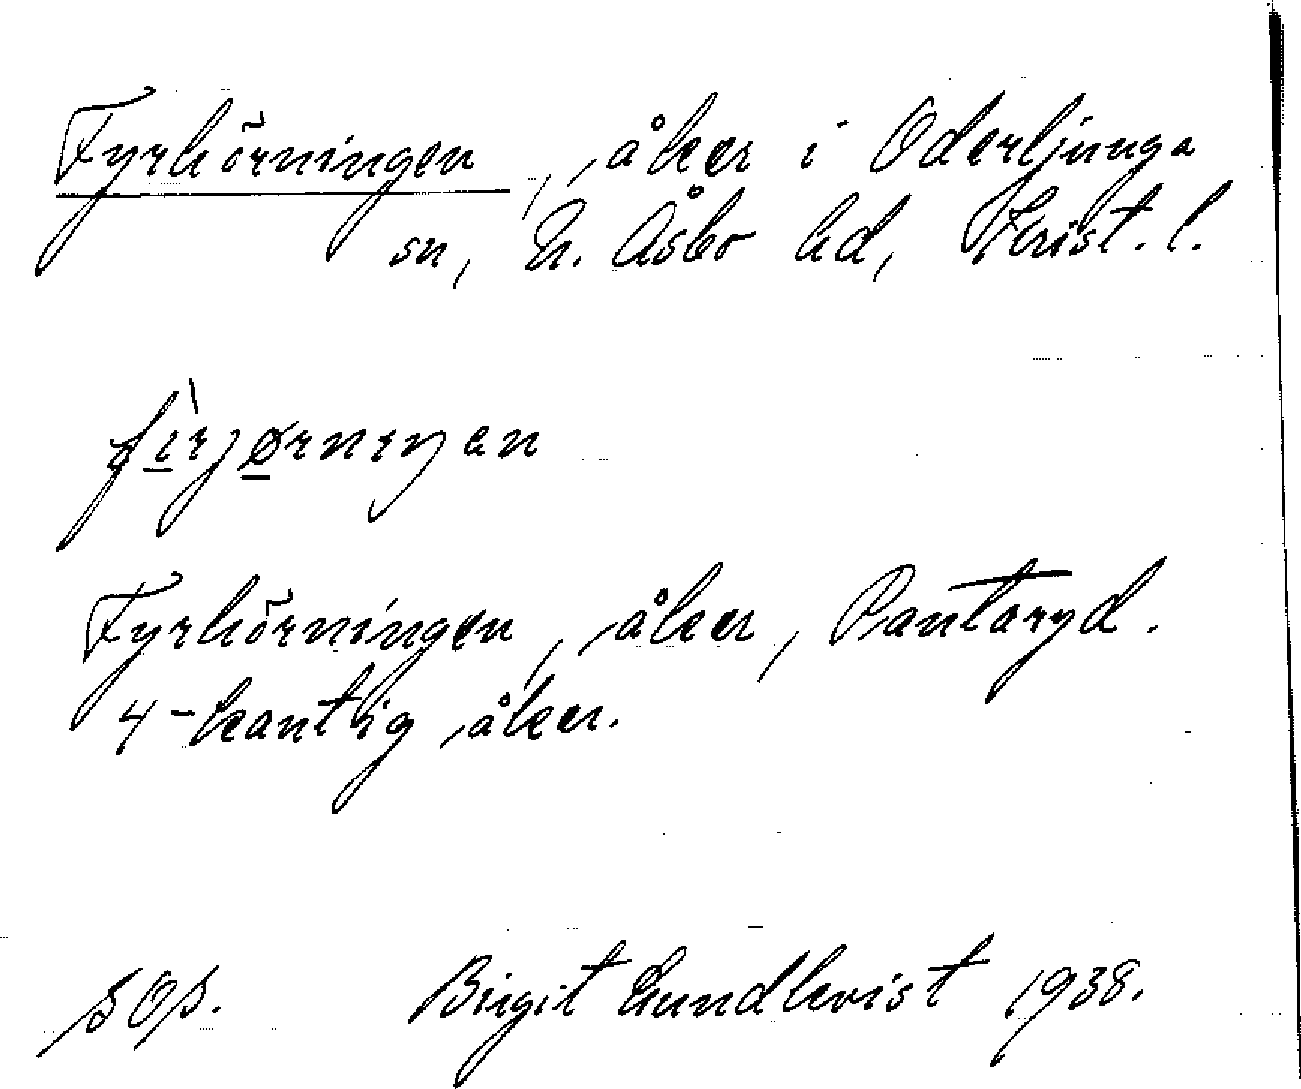 Fyrhörningen, åker i Oderljunga
sn, N. Åsbo hd, Krist. l.
Fyrhörningen, åker, Pantaryd.
4-kantig åker.
sOs. Birgit Lundkvist 1938.